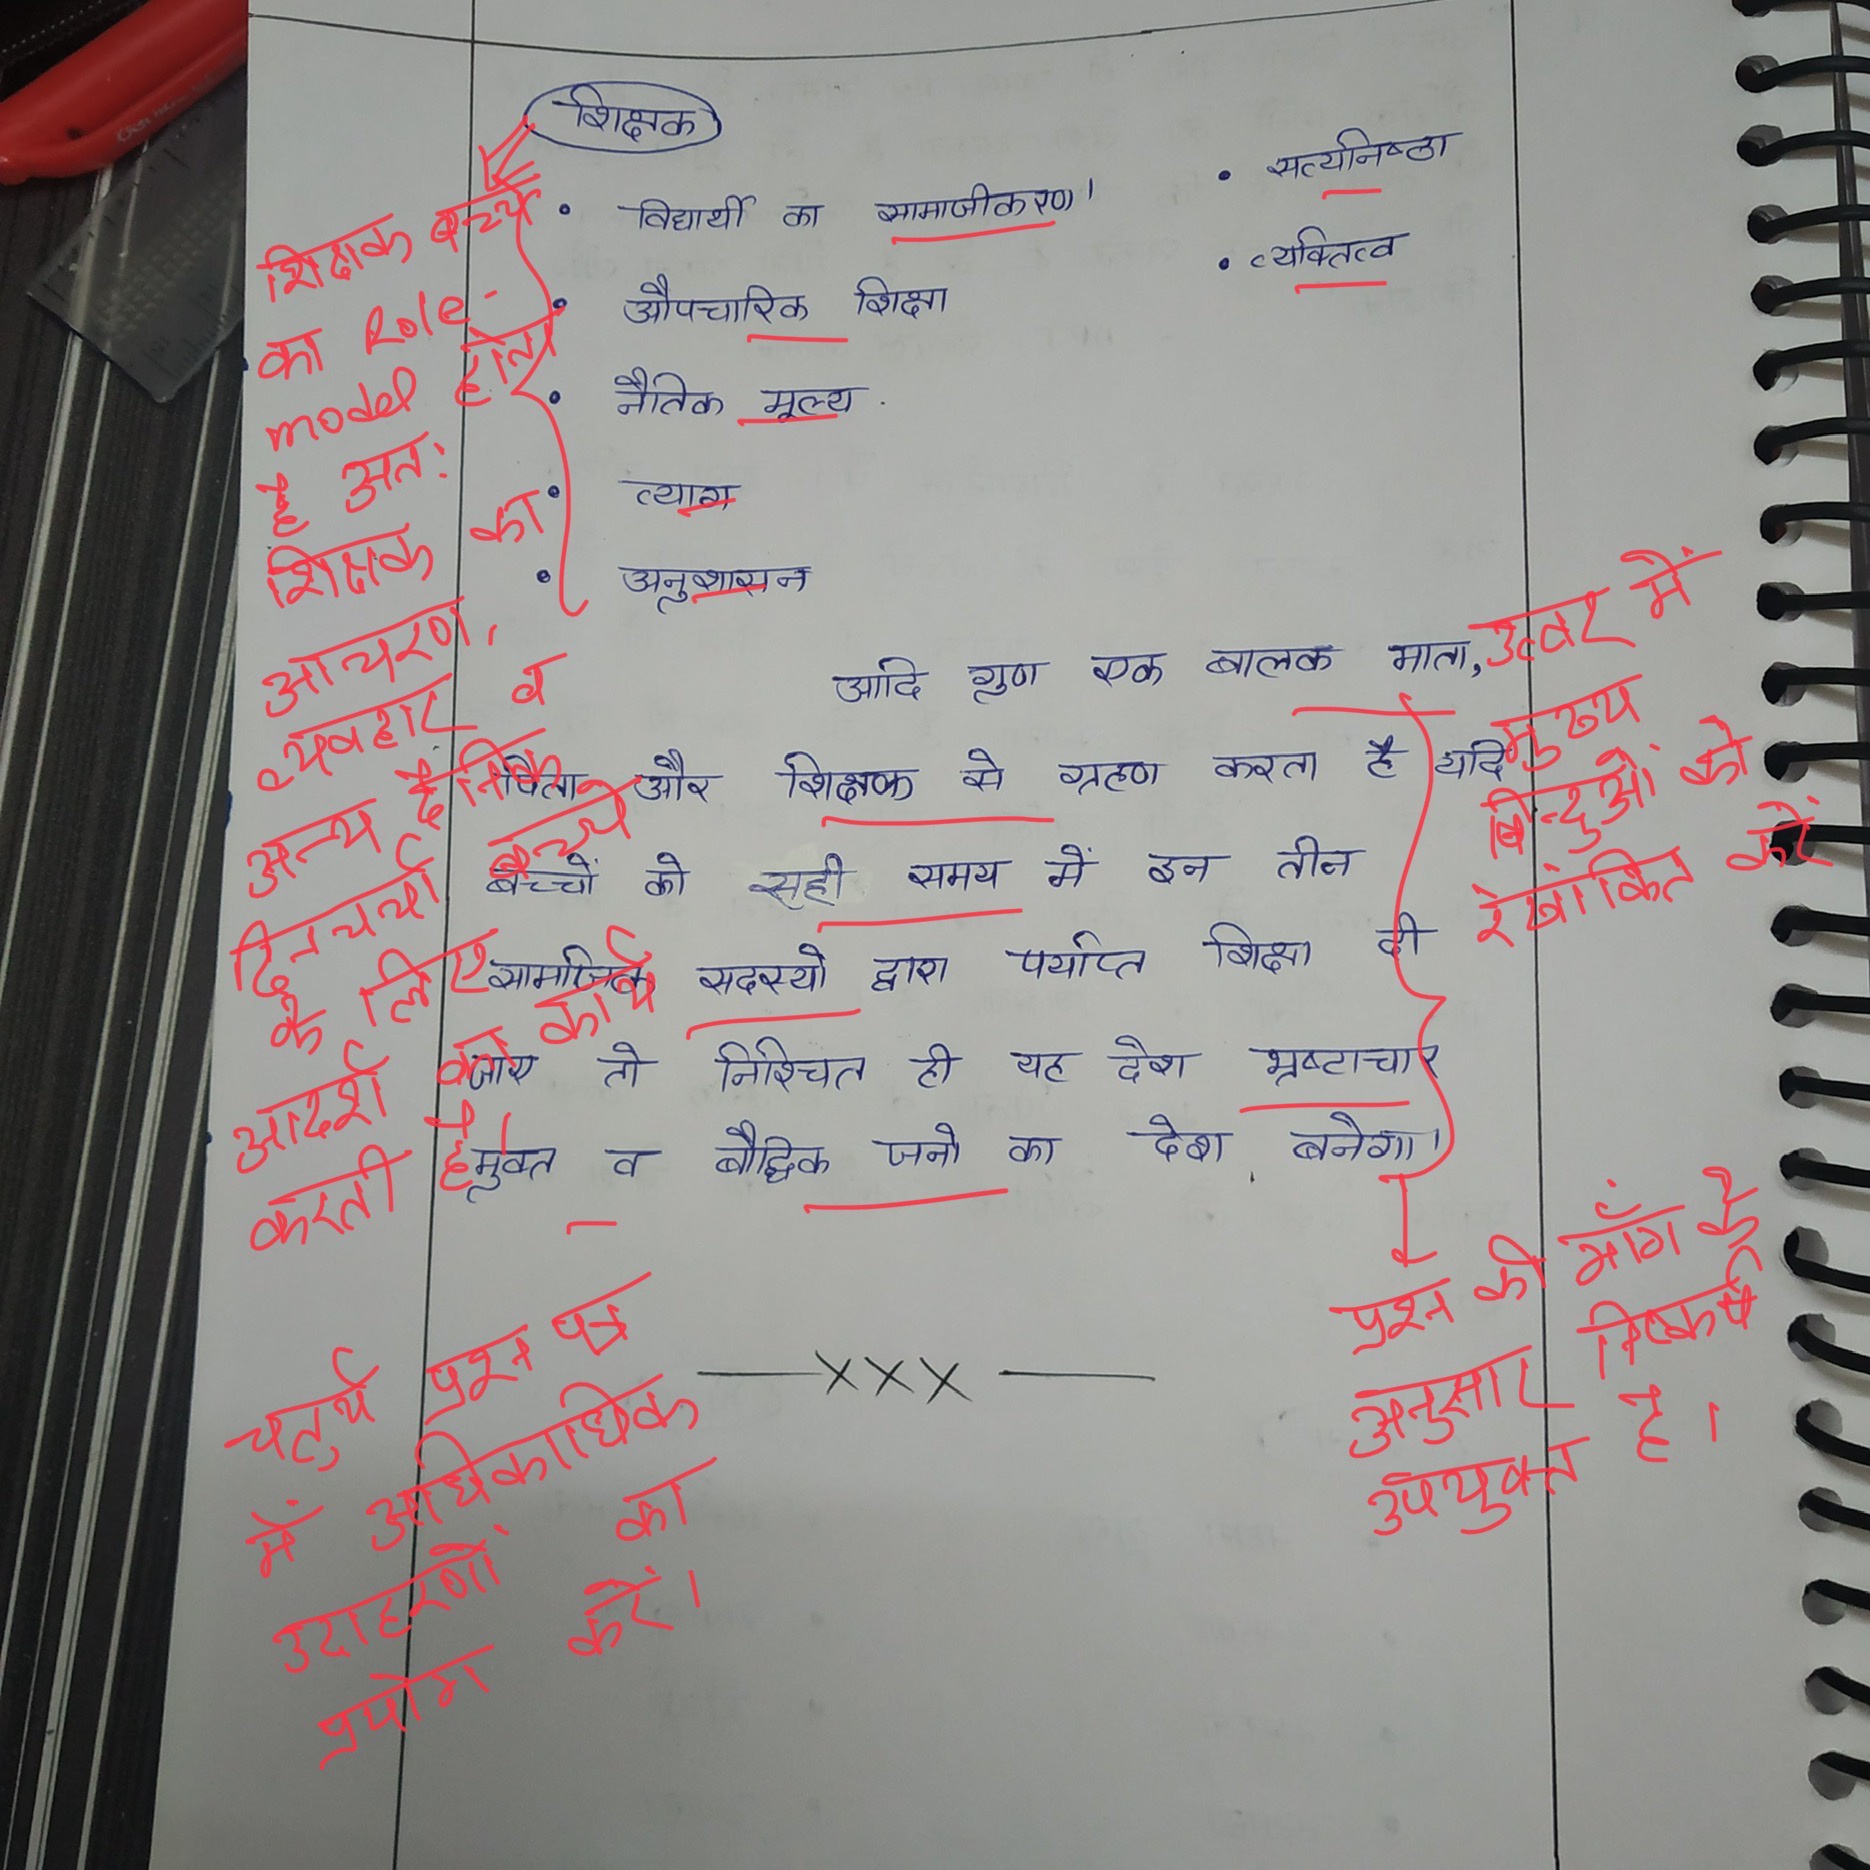 शिक्षक
• विद्यार्थी का सामाजीकरण।
• औपचारिक शिक्षा
• नैतिक मूल्य .
• त्याग
• अनुशासन
• सत्यनिष्ठा
• व्यक्तित्व
आदि गुण एक बालक माता,
पिता और शिक्षक से ग्रहण करता है यदि
बच्चों को सही समय में इन तीन
सामाजिक सदस्यो द्वारा पर्याप्त शिक्षा दी
जाए तो निश्चित ही यह देश भ्रष्टाचार
मुक्त व बौद्धिक जनो का देश बनेगा।
—xxx—
शिक्षक बच्चों
का Role-
model होता
है अतः
शिक्षक का
आचरण,
व्यवहार व
अन्य दैनिक
दिनचर्या बच्चे
के लिए
आदर्श का कार्य
करती है।
उत्तर में
मुख्य
बिन्दुओं को
रेखांकित करें
प्रश्न की माँग के
अनुसार निष्कर्ष
उपयुक्त है।
चतुर्थ प्रश्न पत्र
में अधिकाधिक
उदाहरणों का
प्रयोग करें।